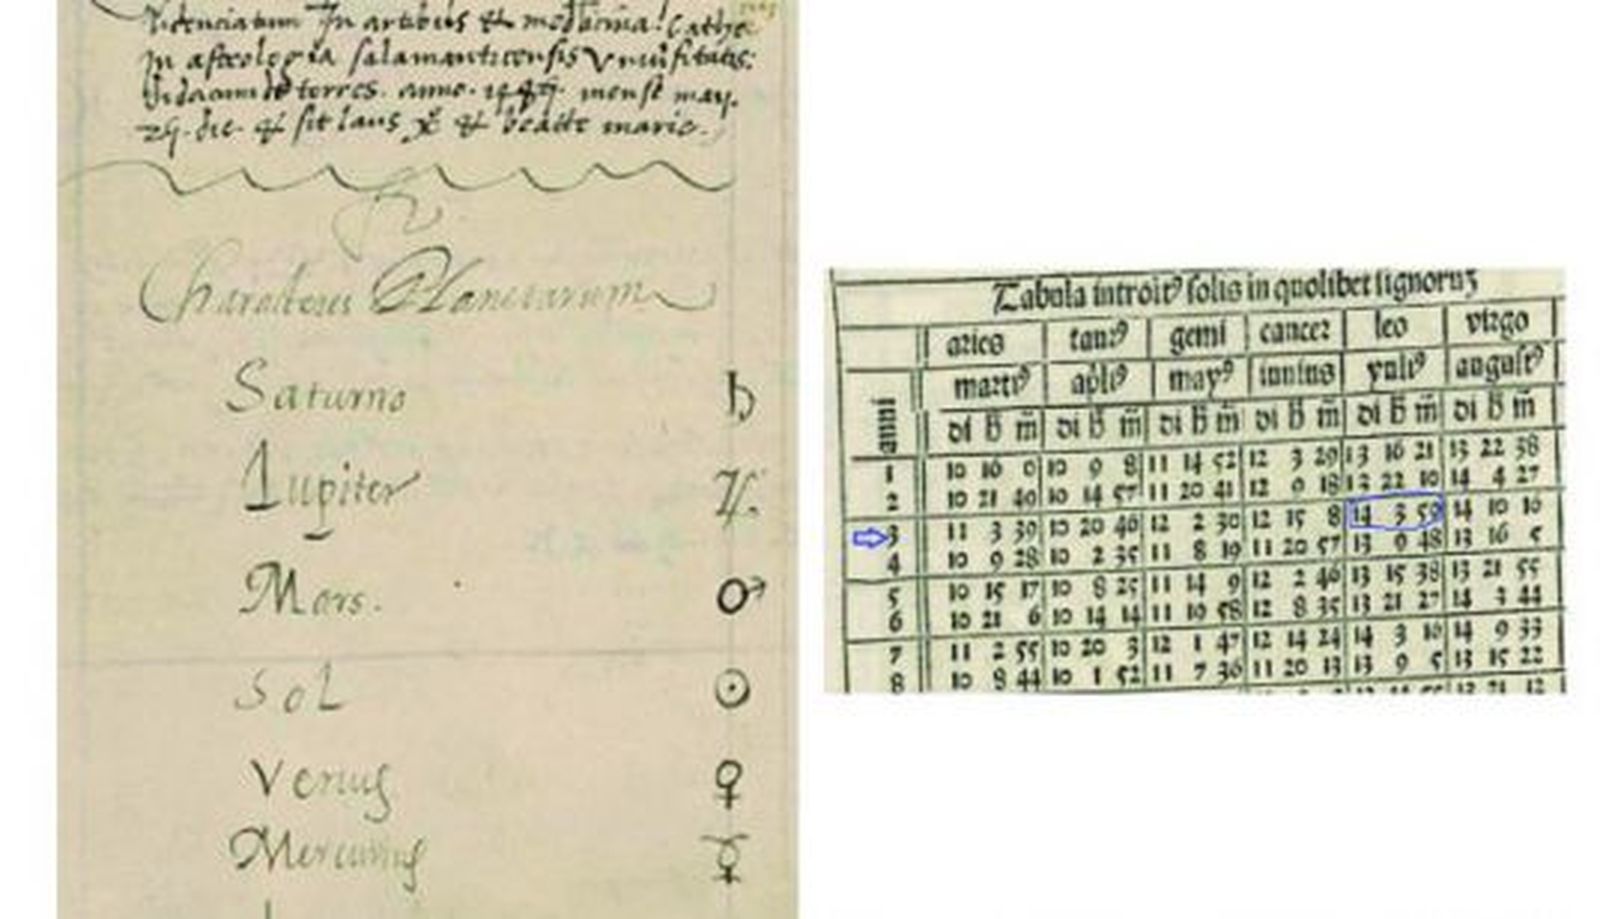 In artibus & medicina
In astrologia salamanticensis
de torres. anno. mense may.
die & sit laus & beatte marie.
Characteres Planetarum
Saturno ♄
Iupiter ♃
Mars. ♂
Sol ☉
Venus ♀
Mercurius ☿
Tabula introitꝰ solis in quolibet signoruꝫ
aries taurꝰ gemi cancer leo virgo
anni martiꝰ aꝑlꝰ mayꝰ iunius yuliꝰ augustꝰ
di h m̄ di h m̄ di h m̄ di h m̄ di h m̄ di h m̄
1 10 16 0 10 9 8 11 14 52 12 3 29 13 16 21 13 22 38
2 10 21 49 10 14 57 11 20 41 12 9 18 13 22 10 14 4 27
3 11 3 39 10 20 46 12 2 30 12 15 8 14 3 59 14 10 16
4 10 9 28 10 2 35 11 8 19 11 20 57 13 9 48 13 16 5
5 10 15 17 10 8 25 11 14 9 12 2 46 13 15 38 13 21 55
6 10 21 6 10 14 14 11 19 58 12 8 35 13 21 27 14 3 44
7 11 2 55 10 20 3 12 1 47 12 14 24 14 3 16 14 9 33
8 10 8 44 10 1 52 11 7 36 11 20 13 13 9 5 13 15 22